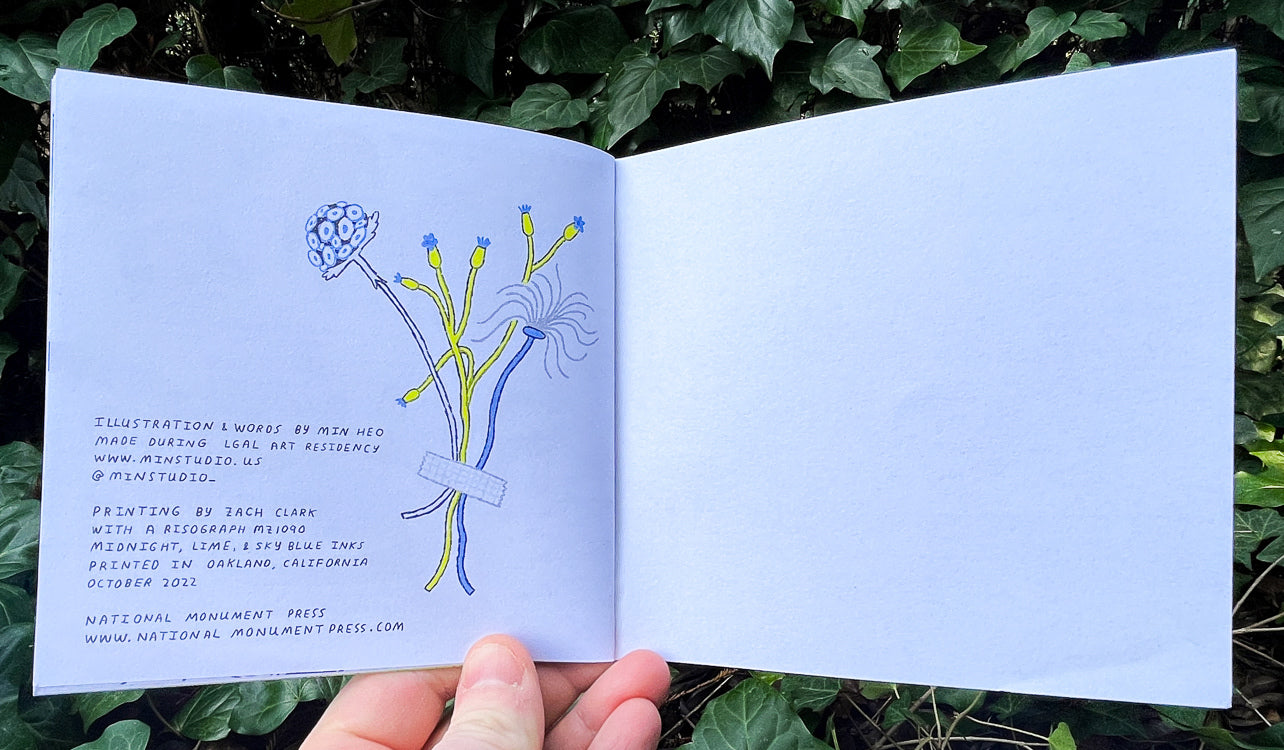 ILLUSTRATION & WORDS BY MIN HEO
MADE DURING LGAL ART RESIDENCY
WWW.MINSTUDIO.US
@MINSTUDIO_
PRINTING BY ZACH CLARK
WITH A RISOGRAPH MZ1090
MIDNIGHT, LIME, & SKY BLUE INKS
PRINTED IN OAKLAND, CALIFORNIA
OCTOBER 2022
NATIONAL MONUMENT PRESS
WWW.NATIONAL MONUMENTPRESS.COM